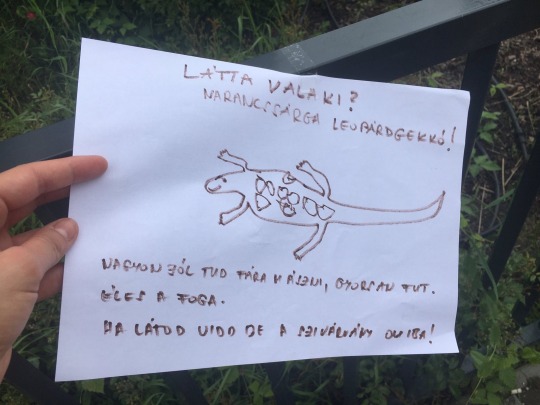 LÁTTA VALAKI?
NARANCSSÁRGA LEOPÁRDGEKKÓ!
NAGYON JÓL TUD FÁRA MÁSZNI, GYORSAN FUT.
ÉLES A FOGA.
HA LÁTOD VIDD BE A SZIVÁRVÁNY OVIBA!